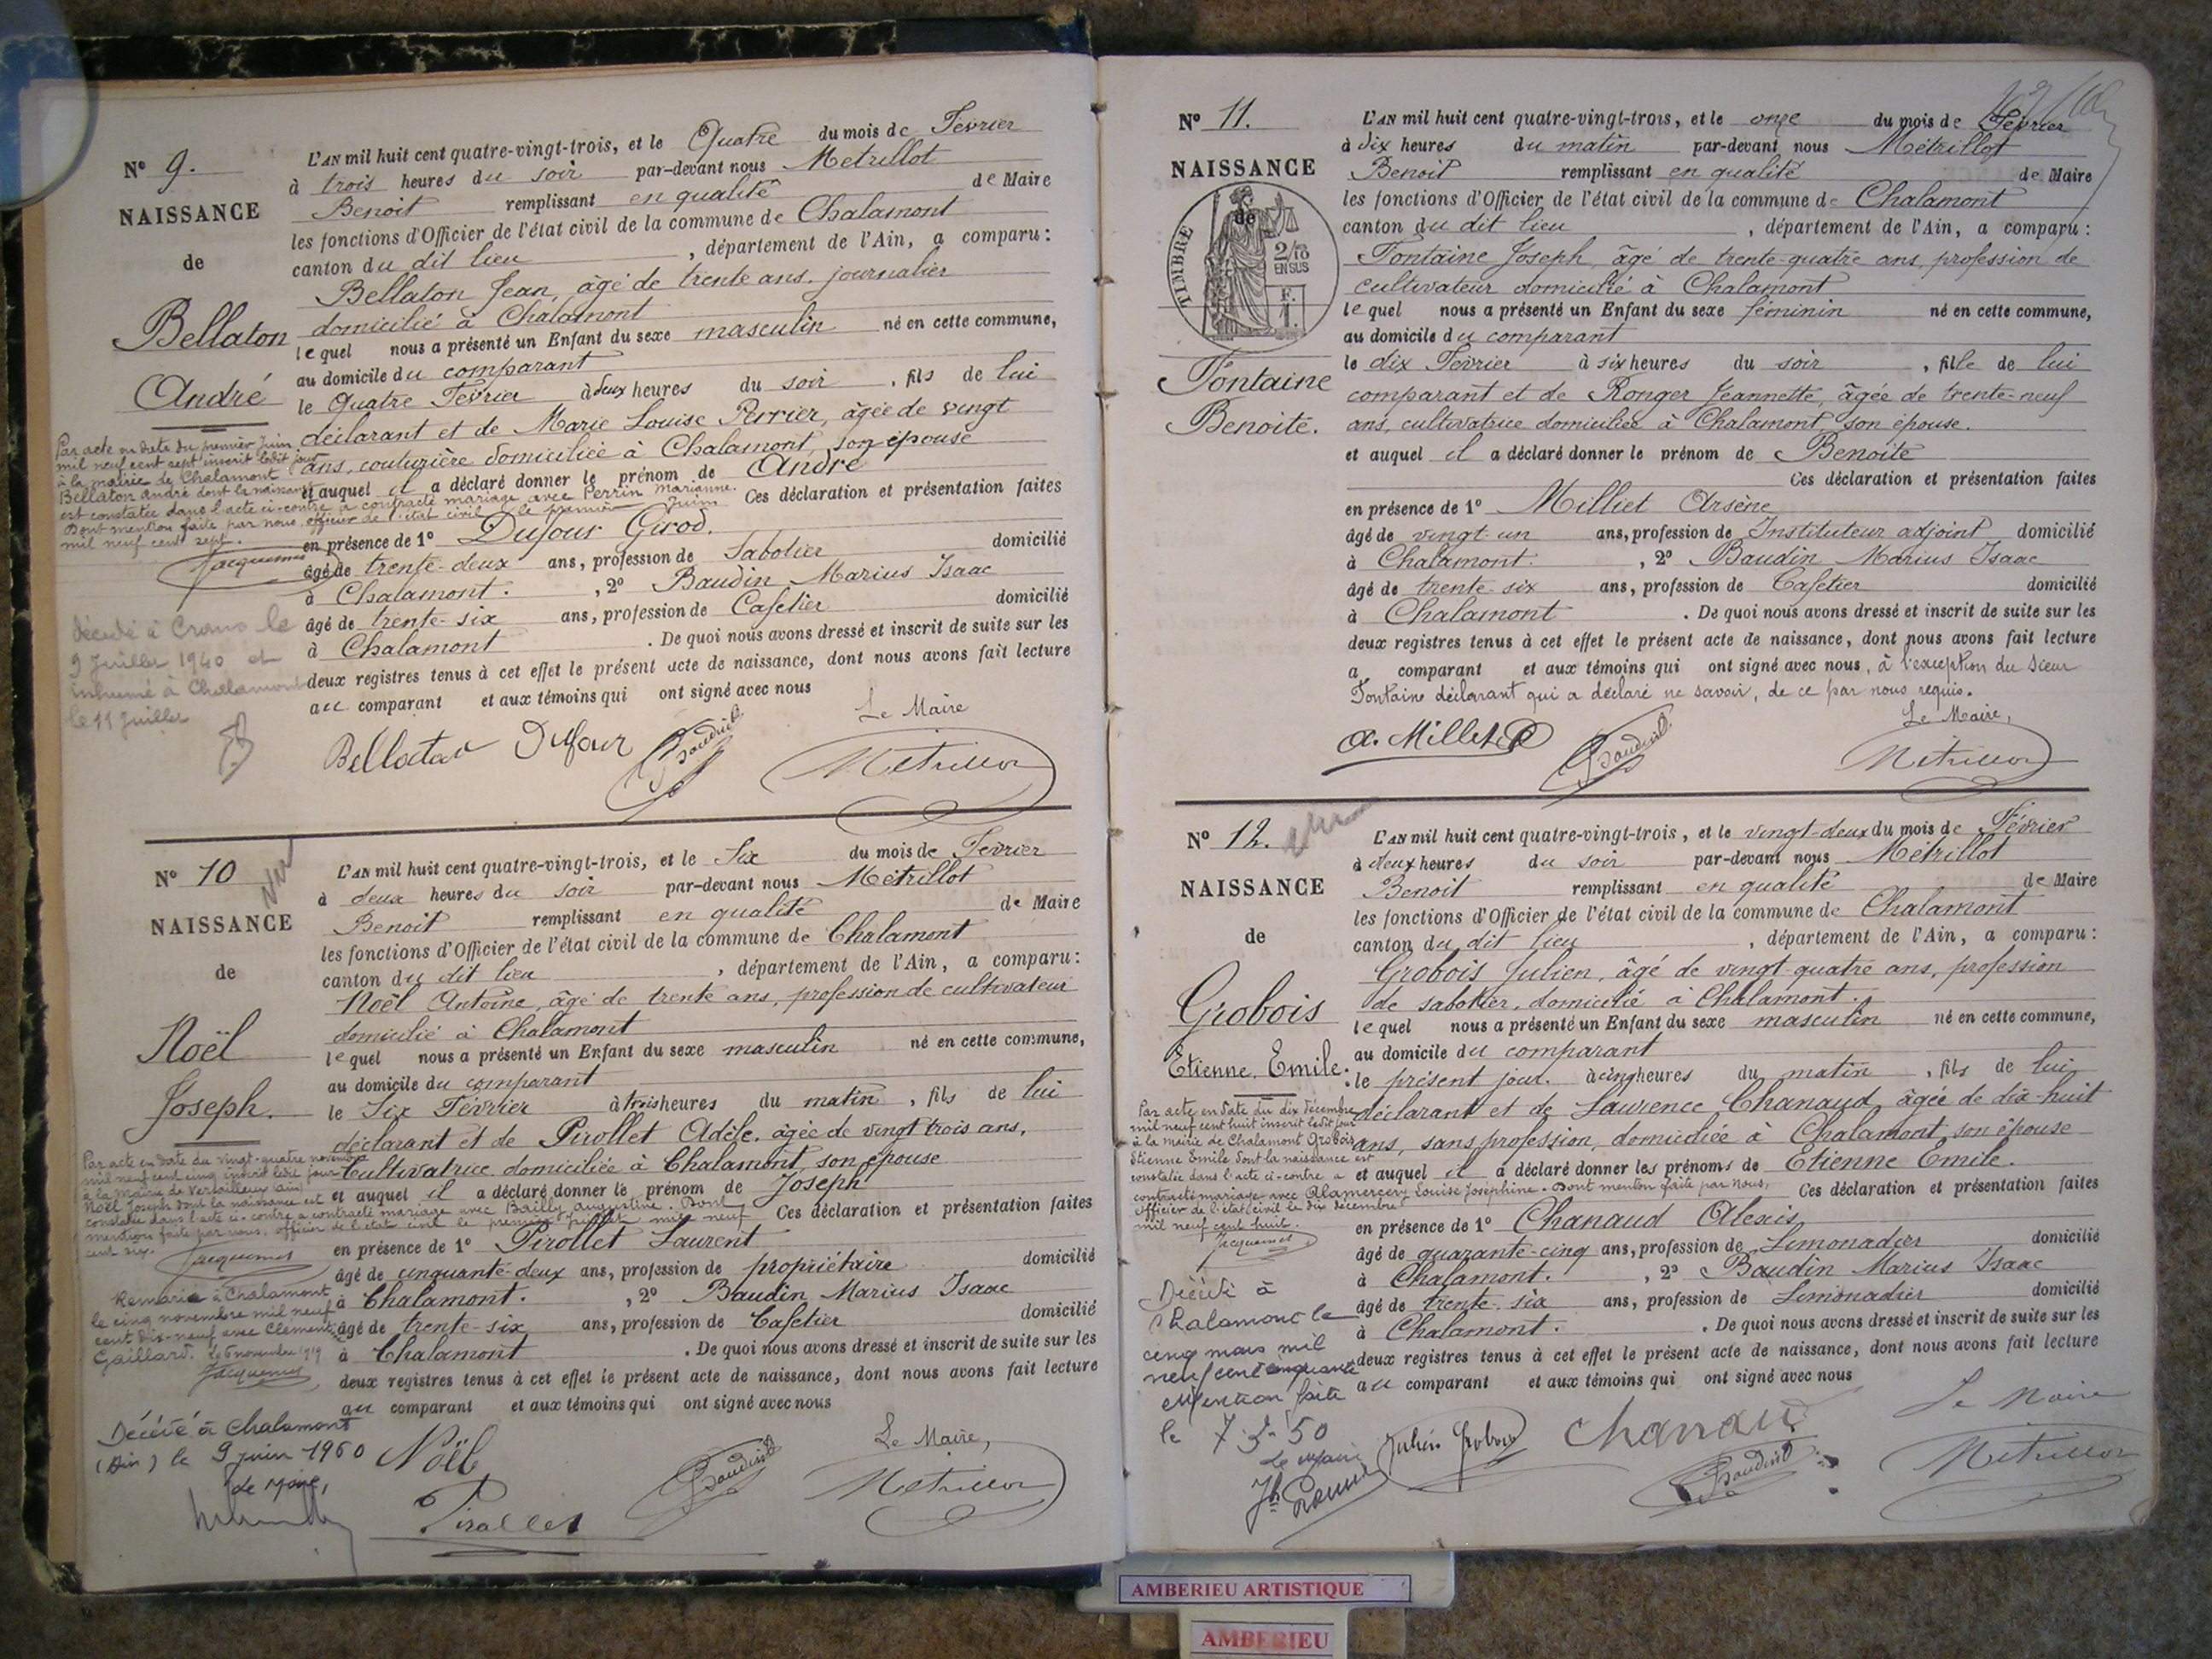 N° 9.
NAISSANCE
de
Bellaton
André
Par acte en date du premier Juin
mil neuf cent sept inscrit ledit jour
à la mairie de Chalamont
Bellaton André dont la naissance
est constatée dans l'acte ci-contre a contracté mariage avec Perrin Marianne.
Dont mention faite par nous, officier de l'état civil le premier Juin
mil neuf cent sept.
Jacquemet
décédé à Crans le
9 Juillet 1940 et
inhumé à Chalamont
le 11 Juillet
L'AN mil huit cent quatre-vingt-trois, et le Quatre du mois de Février
à trois heures du soir par-devant nous Metrillot
Benoit remplissant en qualité de Maire
les fonctions d'Officier de l'état civil de la commune de Chalamont
canton du dit lieu, département de l'Ain, a comparu:
Bellaton Jean, âgé de trente ans, journalier
domicilié à Chalamont
lequel nous a présenté un Enfant du sexe masculin né en cette commune,
au domicile du comparant
le Quatre Février à deux heures du soir, fils de lui
déclarant et de Marie Louise Perrier, âgée de vingt
ans, couturière domiciliée à Chalamont, son épouse
et auquel il a déclaré donner le prénom de André
Ces déclaration et présentation faites
en présence de 1° Dufour Girod.
âgé de trente-deux ans, profession de Sabotier domicilié
à Chalamont. , 2° Baudin Marius Isaac
âgé de trente-six ans, profession de Cafetier domicilié
à Chalamont. De quoi nous avons dressé et inscrit de suite sur les
deux registres tenus à cet effet le présent acte de naissance, dont nous avons fait lecture
au comparant et aux témoins qui ont signé avec nous
Le Maire
Bellaton Dufour Baudin Metrillot
N° 10
NAISSANCE
de
Noël
Joseph.
Par acte en date du vingt-quatre novembre
mil neuf cent cinq inscrit ledit jour
à la Mairie de Versailleux (Ain)
Noël Joseph dont la naissance est
constatée dans l'acte ci-contre a contracté mariage avec Bailly Augustine. Dont
mention faite par nous, officier de l'état civil le premier juillet mil neuf
cent six.
Jacquemet
Remarié à Chalamont
le cinq novembre mil neuf
cent dix-neuf avec Clément
Gaillard. le 6 novembre 1919
Jacquemet
Décédé à Chalamont
(Ain) le 9 juin 1960
Le Maire,
L'AN mil huit cent quatre-vingt-trois, et le Six du mois de Février
à deux heures du soir par-devant nous Métrillot
Benoit remplissant en qualité de Maire
les fonctions d'Officier de l'état civil de la commune de Chalamont
canton du dit lieu, département de l'Ain, a comparu:
Noël Antoine, âgé de trente ans, profession de cultivateur
domicilié à Chalamont
lequel nous a présenté un Enfant du sexe masculin né en cette commune,
au domicile du comparant
le Six Février à trois heures du matin, fils de lui
déclarant et de Pirollet Adèle, âgée de vingt trois ans,
Cultivatrice domiciliée à Chalamont, son épouse
et auquel il a déclaré donner le prénom de Joseph
Ces déclaration et présentation faites
en présence de 1° Pirollet Laurent
âgé de cinquante-deux ans, profession de propriétaire domicilié
à Chalamont. , 2° Baudin Marius Isaac
âgé de trente-six ans, profession de Cafetier domicilié
à Chalamont. De quoi nous avons dressé et inscrit de suite sur les
deux registres tenus à cet effet le présent acte de naissance, dont nous avons fait lecture
au comparant et aux témoins qui ont signé avec nous
Le Maire,
Noël Baudin Metrillot
Pirollet
N° 11.
NAISSANCE
de
TIMBRE
2/10
EN SUS
F.
1.
Fontaine
Benoite.
L'AN mil huit cent quatre-vingt-trois, et le onze du mois de Février
à dix heures du matin par-devant nous Métrillot
Benoit remplissant en qualité de Maire
les fonctions d'Officier de l'état civil de la commune de Chalamont
canton du dit lieu, département de l'Ain, a comparu:
Fontaine Joseph, âgé de trente-quatre ans, profession de
cultivateur domicilié à Chalamont
lequel nous a présenté un Enfant du sexe féminin né en cette commune,
au domicile du comparant
le dix Février à six heures du soir, fille de lui
comparant et de Ronger Jeannette, âgée de trente-neuf
ans, cultivatrice domiciliée à Chalamont, son épouse.
et auquel il a déclaré donner le prénom de Benoite
Ces déclaration et présentation faites
en présence de 1° Milliet Arsène
âgé de vingt-un ans, profession de Instituteur adjoint domicilié
à Chalamont. , 2° Baudin Marius Isaac
âgé de trente-six ans, profession de Cafetier domicilié
à Chalamont. De quoi nous avons dressé et inscrit de suite sur les
deux registres tenus à cet effet le présent acte de naissance, dont nous avons fait lecture
a comparant et aux témoins qui ont signé avec nous, à l'exception du sieur
Fontaine déclarant qui a déclaré ne savoir, de ce par nous requis.
Le Maire,
A. Milliet Baudin Metrillot
N° 12.
NAISSANCE
de
Grobois
Etienne Emile.
Par acte en date du dix décembre
mil neuf cent huit inscrit ledit jour
à la mairie de Chalamont Grobois
Etienne Emile dont la naissance est
constatée dans l'acte ci-contre a
contracté mariage avec Alamercery Louise Joséphine. Dont mention faite par nous,
officier de l'état civil le dix décembre
mil neuf cent huit.
Jacquemet
Décédé à
Chalamont le
cinq mars mil
neuf cent cinquante
Mention faite
le 7-3-50
Le Maire
L'AN mil huit cent quatre-vingt-trois, et le vingt-deux du mois de Février
à deux heures du soir par-devant nous Métrillot
Benoit remplissant en qualité de Maire
les fonctions d'Officier de l'état civil de la commune de Chalamont
canton du dit lieu, département de l'Ain, a comparu:
Grobois Julien, âgé de vingt-quatre ans, profession
de sabotier, domicilié à Chalamont.
lequel nous a présenté un Enfant du sexe masculin né en cette commune,
au domicile du comparant
le présent jour. à cinq heures du matin, fils de lui
déclarant et de Laurence Chanaud âgée de dix-huit
ans, sans profession, domiciliée à Chalamont son épouse
et auquel il a déclaré donner les prénoms de Etienne Emile.
Ces déclaration et présentation faites
en présence de 1° Chanaud Alexis
âgé de quarante-cinq ans, profession de Limonadier domicilié
à Chalamont. , 2° Baudin Marius Isaac
âgé de trente-six ans, profession de Limonadier domicilié
à Chalamont. De quoi nous avons dressé et inscrit de suite sur les
deux registres tenus à cet effet le présent acte de naissance, dont nous avons fait lecture
au comparant et aux témoins qui ont signé avec nous
Le Maire
Julien Grobois Chanaud Baudin Metrillot
AMBERIEU ARTISTIQUE
AMBERIEU